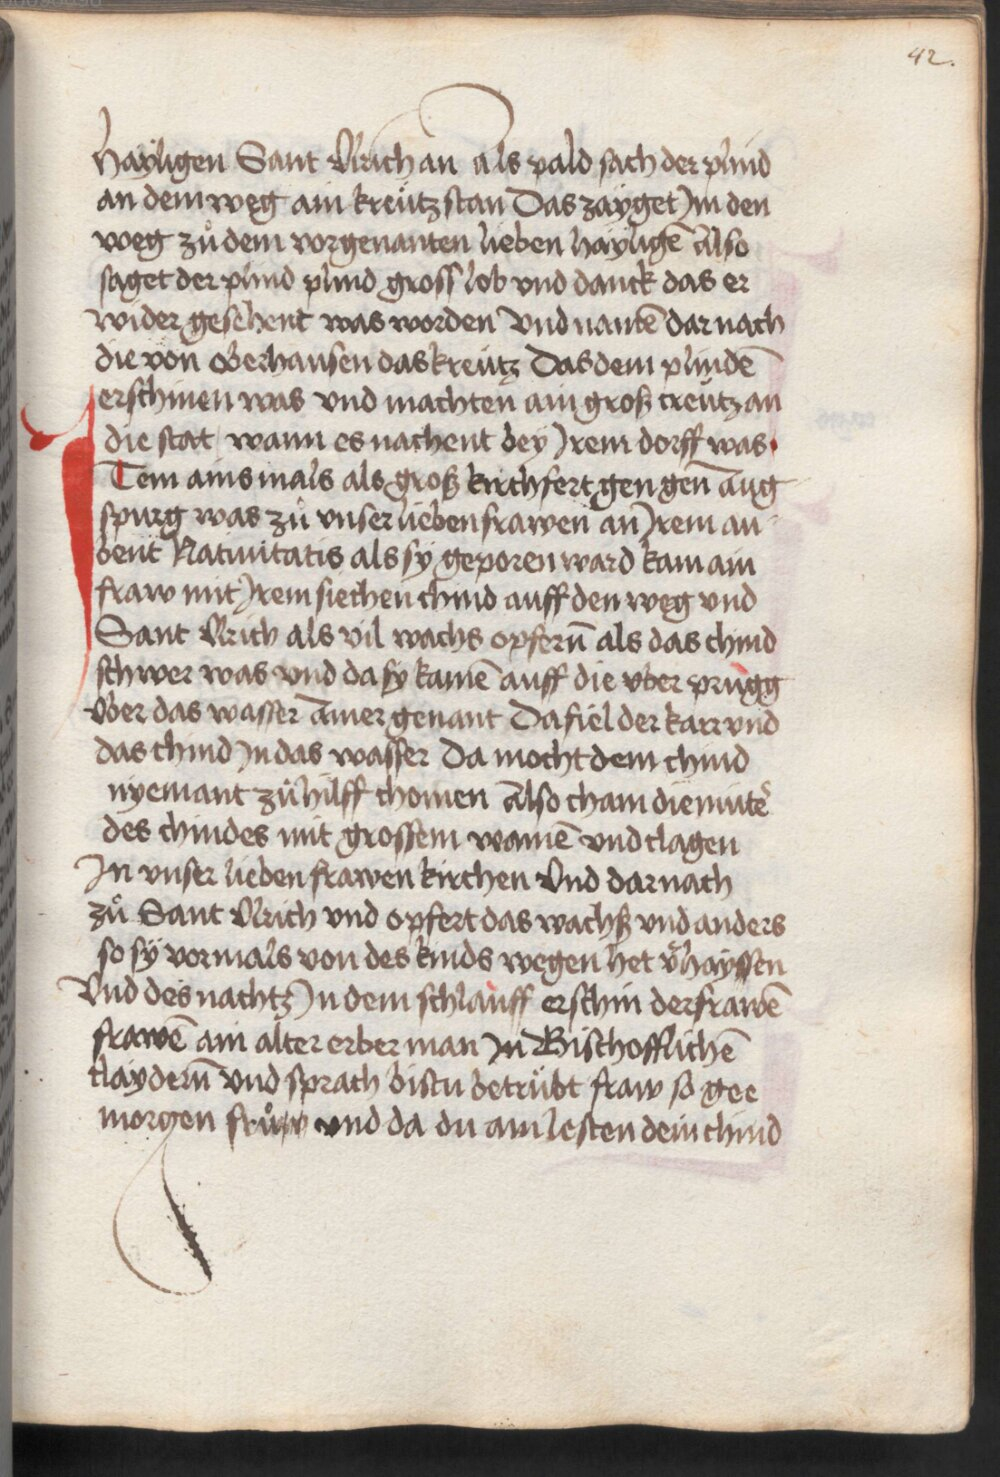 42.
hayligen Sant Ulrich an als pald sach der plind
an dem weg ain kreütz stan Das zayget Im den
weg zů dem vorgenanten lieben hayligē Also
saget der plind plind gross lob vnd danck das er
wider gesehent was worden Vnd namē dar nach
die von Oberhausen das kreütz Das dem plindē
erschinen was vnd machten ain groß creütz an
die stat wann es nachent bey Irem dorff was
Item ains mals als groß kirchfert gen gen̄ Aug
spurg was zů vnser lieben frawen an Irem au
bent Natiuitatis als sy geporen ward kam ain
fraw mit Irem siechen chind auff den weg vnd
Sant Ulrich als vil wachs opfern̄ als das chind
schwer was vnd da sy kamē auff die vber prugg
vber das wasser Amer genant Da fiel der karr vnd
das chind In das wasser Da mocht dem chind
nyemant zů hilff chomen Also cham die mutē
des chindes mit grossem wainē vnd clagen
In vnser lieben frawen kirchen Vnd dar nach
zů Sant Ulrich vnd opfert das wachß vnd anders
so sy vormals von des kinds wegen het v̄hayssen
Vnd des nachtz In dem schlauff erschin der frawē
frawē ain alter erber man In Bischofflichē
claydern̄ Vnd sprach bistu betrübt fraw so gee
morgen frůw vnd da du am lesten dein chind